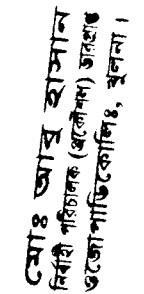 মোঃ আবু হাসান
নির্বাহী পরিচালক (প্রকৌশল) ভারপ্রাপ্ত
ওজোপাডিকোলিঃ, খুলনা।